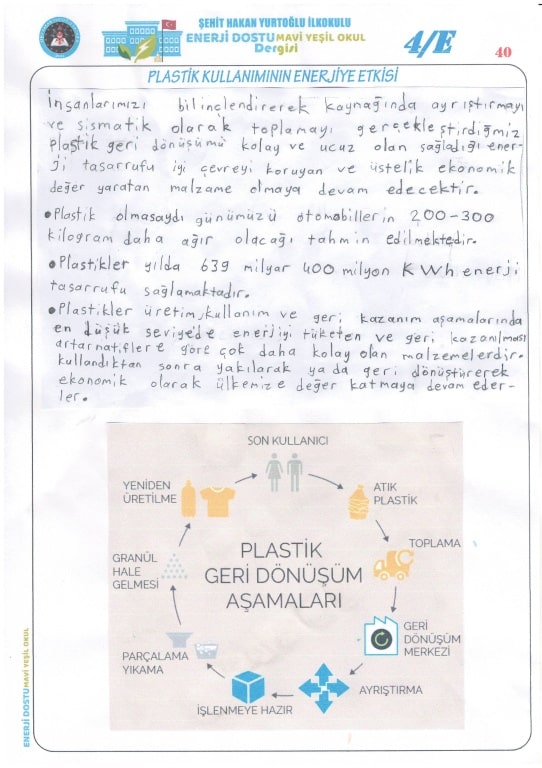 ŞEHİT HAKAN YURTOĞLU İLKOKULU
ENERJİ DOSTU MAVİ YEŞİL OKUL
Dergisi
4/E
40
PLASTİK KULLANIMININ ENERJİYE ETKİSİ
İnsanlarımızı bilinçlendirerek kaynağında ayrıştırmayı
ve sismatik olarak toplamayı gerçekleştirdiğmiz
plastik geri dönüşümü kolay ve ucuz olan sağladığı ener-
ji tasarrufu iyi çevreyi koruyan ve üstelik ekonomik
değer yaratan malzame olmaya devam edecektir.
•Plastik olmasaydı günümüzü otomobillerin 200-300
kilogram daha ağır olacağı tahmin edilmektedir.
•Plastikler yılda 639 milyar 400 milyon KWh enerji
tasarrufu sağlamaktadır.
•Plastikler üretim, kullanım ve geri kazanım aşamalarında
en düşük seviyede enerjiyi tüketen ve geri kazanılması
artarnatiflere göre çok daha kolay olan malzemelerdir.
kullandıktan sonra yakılarak ya da geri dönüştürerek
ekonomik olarak ülkemize değer katmaya devam eder-
ler.
SON KULLANICI
YENİDEN
ÜRETİLME
ATIK
PLASTİK
TOPLAMA
GRANÜL
HALE
GELMESİ
PLASTİK
GERİ DÖNÜŞÜM
AŞAMALARI
GERİ
DÖNÜŞÜM
MERKEZİ
PARÇALAMA
YIKAMA
AYRIŞTIRMA
İŞLENMEYE HAZIR
ENERJİ DOSTU MAVİ YEŞİL OKUL